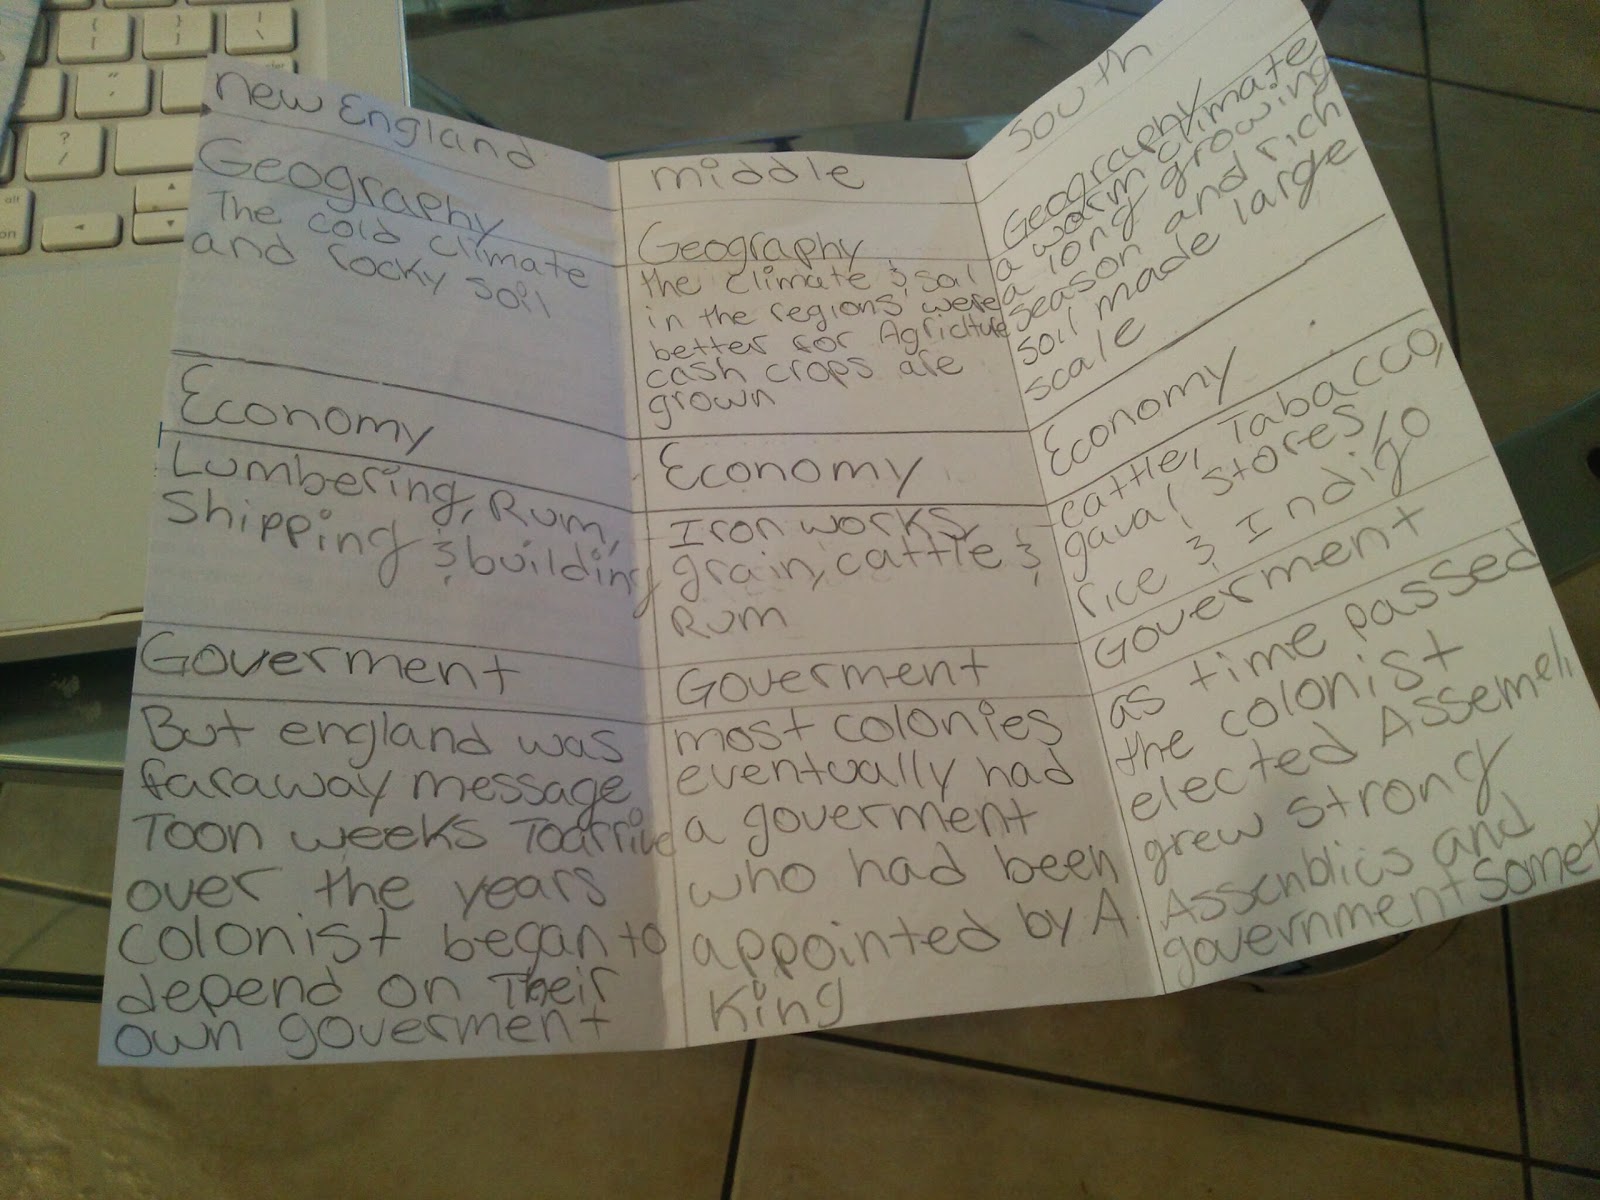 new England
Geography
The cold climate
and rocky soil
Economy
Lumbering, Rum,
Shipping & building
Goverment
But england was
faraway message
Toon weeks Toarrive
over the years
colonist began to
depend on Their
own goverment
middle
Geography
the climate & soil
in the regions were
better for Agriclture
cash crops are
grown
Economy
Iron works,
grain, cattle &
Rum
Goverment
most colonies
eventually had
a goverment
who had been
appointed by A
King
South
Geography
a warm climate
a long growing
season and rich
soil made large
scale
Economy
cattle, Tabacco,
gaval stores,
rice & Indigo
Goverment
as time passed
the colonist
elected Assemeli
grew strong
Assenblics and
government somet